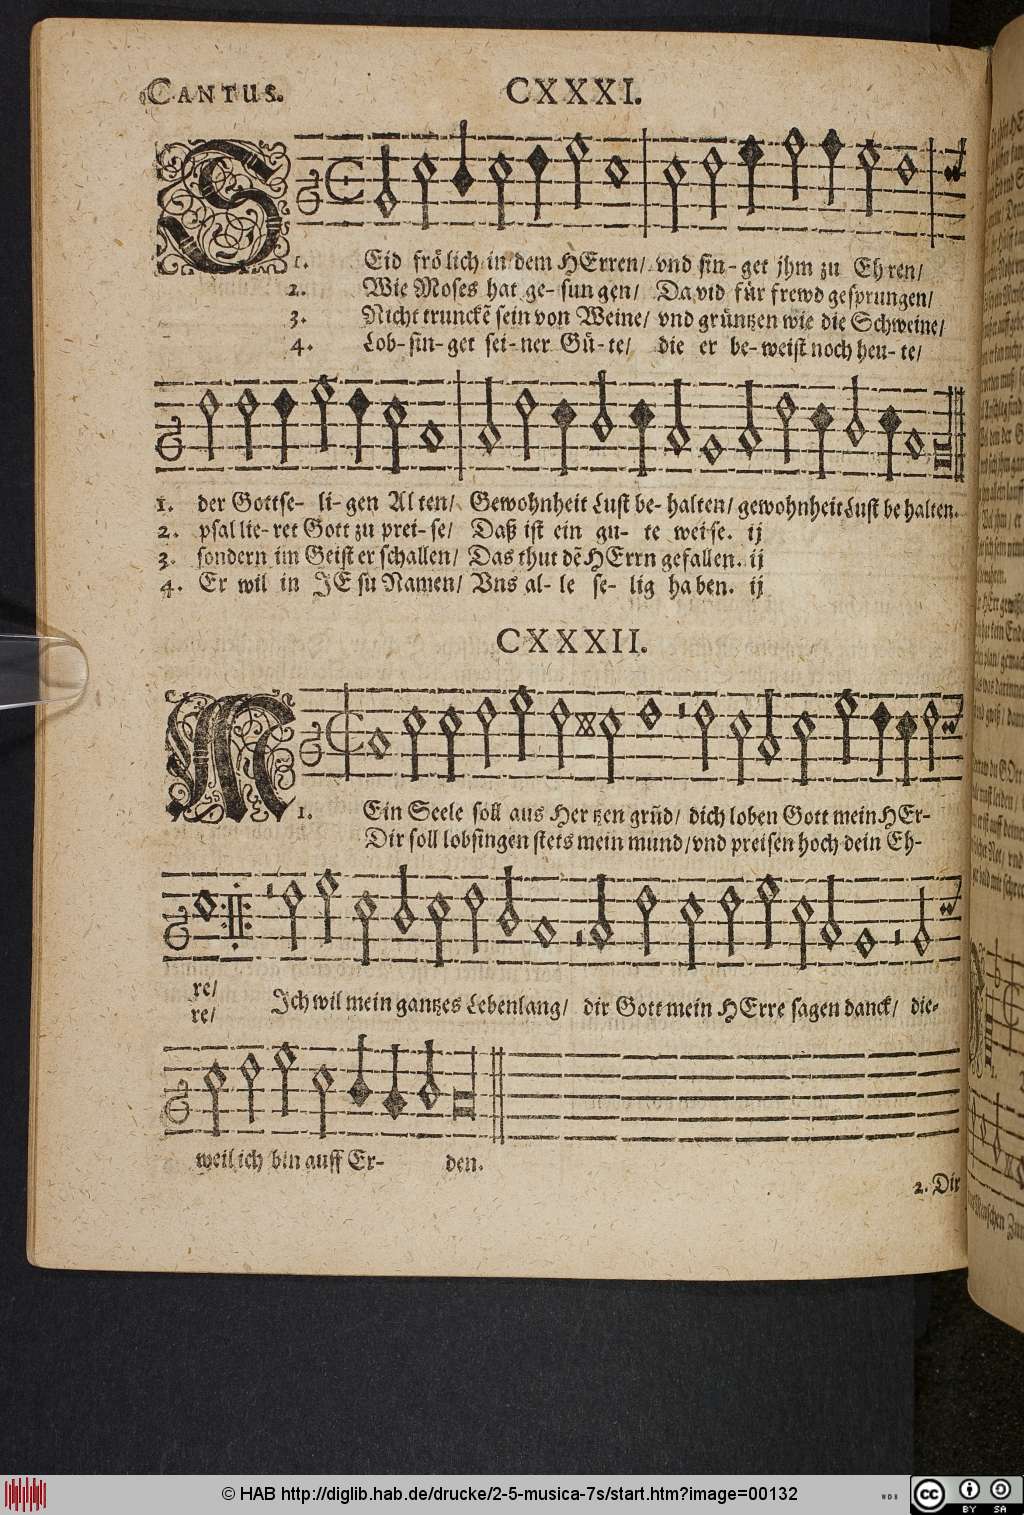 CANTUS. CXXXI.
1. SEid frölich in dem HErren/ vnd sin- get jhm zu Eh ren/
2. Wie Moses hat ge- sun gen/ Da vid für frewd gesprungen/
3. Nicht trunckē sein von Weine/ vnd grüntzen wie die Schweine/
4. Lob- sin- get sei- ner Gü- te/ die er be- weist noch heu- te/
1. der Gottse- li- gen Al ten/ Gewohnheit Lust be- halten/ gewohnheit Lust be halten.
2. psal lie- ret Gott zu prei- se/ Daß ist ein gu- te wei-se. ij
3. sondern im Geist er schallen/ Das thut dē HErrn gefallen. ij
4. Er wil in JE su Namen/ Vns al- le se- lig ha ben. ij
CXXXII.
1. MEin Seele soll aus Her tzen grūd/ dich loben Gott mein HEr-
Dir soll lobsingen stets mein mund/ vnd preisen hoch dein Eh-
re/ Jch wil mein gantzes Lebenlang/ dir Gott mein HErre sagen danck/ die-
re/
weil ich bin auff Er- den.
2. Dir
© HAB http://diglib.hab.de/drucke/2-5-musica-7s/start.htm?image=00132
WDB
cc BY SA